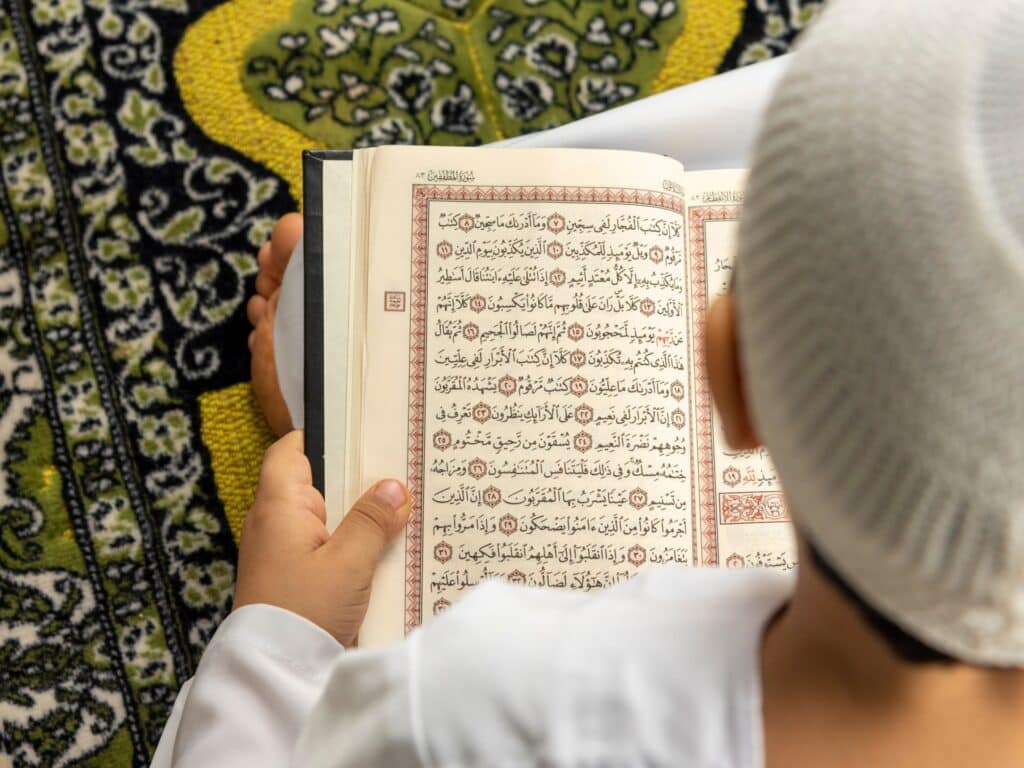 سُورَةُ الانفِطَار ٨٢
يَوْمَئِذٍ لِّلَّهِ ١٩
يَسْتَوْفُونَ
سُورَةُ المُطَفِّفِين ٨٣
كَلَّآ إِنَّ كِتَٰبَ ٱلْفُجَّارِ لَفِى سِجِّينٍ ٧ وَمَآ أَدْرَىٰكَ مَا سِجِّينٌ ٨ كِتَٰبٌ
مَّرْقُومٌ ٩ وَيْلٌ يَوْمَئِذٍ لِّلْمُكَذِّبِينَ ١٠ ٱلَّذِينَ يُكَذِّبُونَ بِيَوْمِ ٱلدِّينِ ١١
وَمَا يُكَذِّبُ بِهِۦٓ إِلَّا كُلُّ مُعْتَدٍ أَثِيمٍ ١٢ إِذَا تُتْلَىٰ عَلَيْهِ ءَايَٰتُنَا قَالَ أَسَٰطِيرُ
ٱلْأَوَّلِينَ ١٣ كَلَّا بَلْ رَانَ عَلَىٰ قُلُوبِهِم مَّا كَانُوا۟ يَكْسِبُونَ ١٤ كَلَّآ إِنَّهُمْ
عَن رَّبِّهِمْ يَوْمَئِذٍ لَّمَحْجُوبُونَ ١٥ ثُمَّ إِنَّهُمْ لَصَالُوا۟ ٱلْجَحِيمِ ١٦ ثُمَّ يُقَالُ
هَٰذَا ٱلَّذِى كُنتُم بِهِۦ تُكَذِّبُونَ ١٧ كَلَّآ إِنَّ كِتَٰبَ ٱلْأَبْرَارِ لَفِى عِلِّيِّينَ
١٨ وَمَآ أَدْرَىٰكَ مَا عِلِّيُّونَ ١٩ كِتَٰبٌ مَّرْقُومٌ ٢٠ يَشْهَدُهُ ٱلْمُقَرَّبُونَ
٢١ إِنَّ ٱلْأَبْرَارَ لَفِى نَعِيمٍ ٢٢ عَلَى ٱلْأَرَآئِكِ يَنظُرُونَ ٢٣ تَعْرِفُ فِى
وُجُوهِهِمْ نَضْرَةَ ٱلنَّعِيمِ ٢٤ يُسْقَوْنَ مِن رَّحِيقٍ مَّخْتُومٍ ٢٥
خِتَٰمُهُۥ مِسْكٌ وَفِى ذَٰلِكَ فَلْيَتَنَافَسِ ٱلْمُتَنَٰفِسُونَ ٢٦ وَمِزَاجُهُۥ
مِن تَسْنِيمٍ ٢٧ عَيْنًا يَشْرَبُ بِهَا ٱلْمُقَرَّبُونَ ٢٨ إِنَّ ٱلَّذِينَ
أَجْرَمُوا۟ كَانُوا۟ مِنَ ٱلَّذِينَ ءَامَنُوا۟ يَضْحَكُونَ ٢٩ وَإِذَا مَرُّوا۟ بِهِمْ
يَتَغَامَزُونَ ٣٠ وَإِذَا ٱنقَلَبُوٓا۟ إِلَىٰٓ أَهْلِهِمُ ٱنقَلَبُوا۟ فَكِهِينَ ٣١
إِنَّ هَٰٓؤُلَآءِ لَضَآلُّونَ ٣٢ أُرْسِلُوا۟ عَلَيْهِمْ